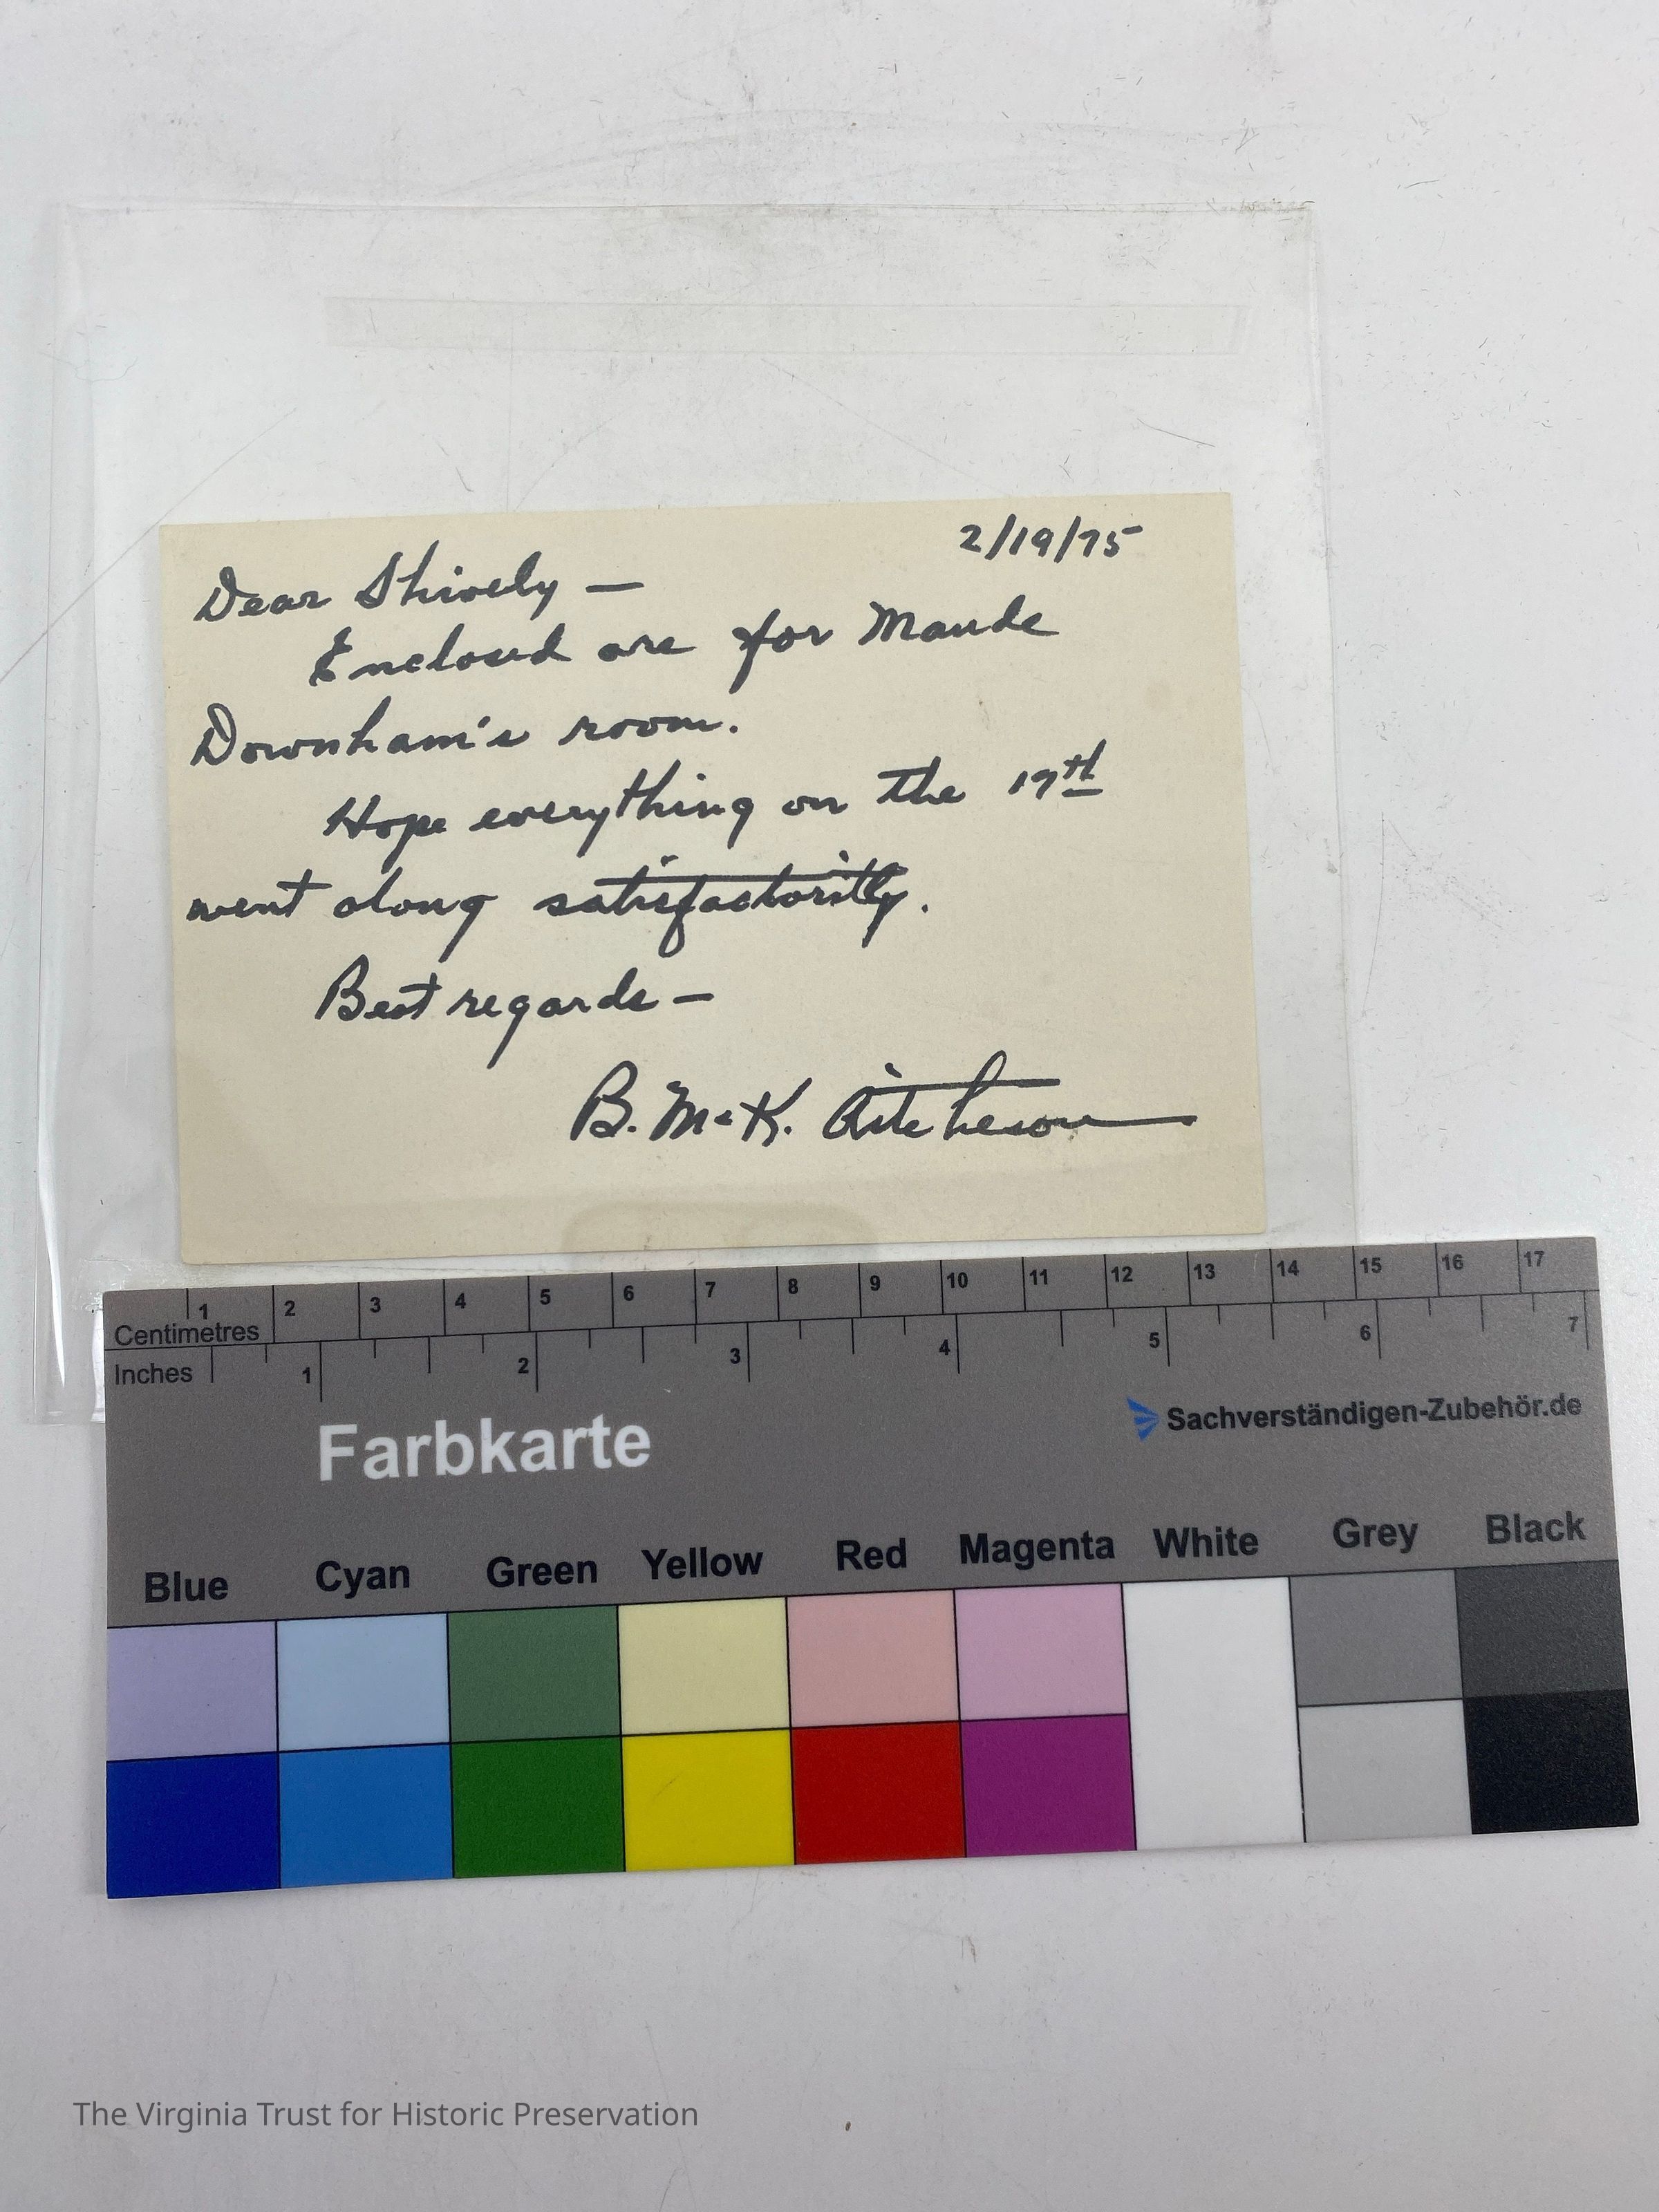 2/19/75
Dear Shively —
Enclosed are for Maude
Downham's room.
Hope everything on the 17th
went along satisfactorily.
Best regards —
B. McK. Aitcheson
1 2 3 4 5 6 7 8 9 10 11 12 13 14 15 16 17
Centimetres
Inches 1 2 3 4 5 6 7
Farbkarte
Sachverständigen-Zubehör.de
Blue Cyan Green Yellow Red Magenta White Grey Black
The Virginia Trust for Historic Preservation